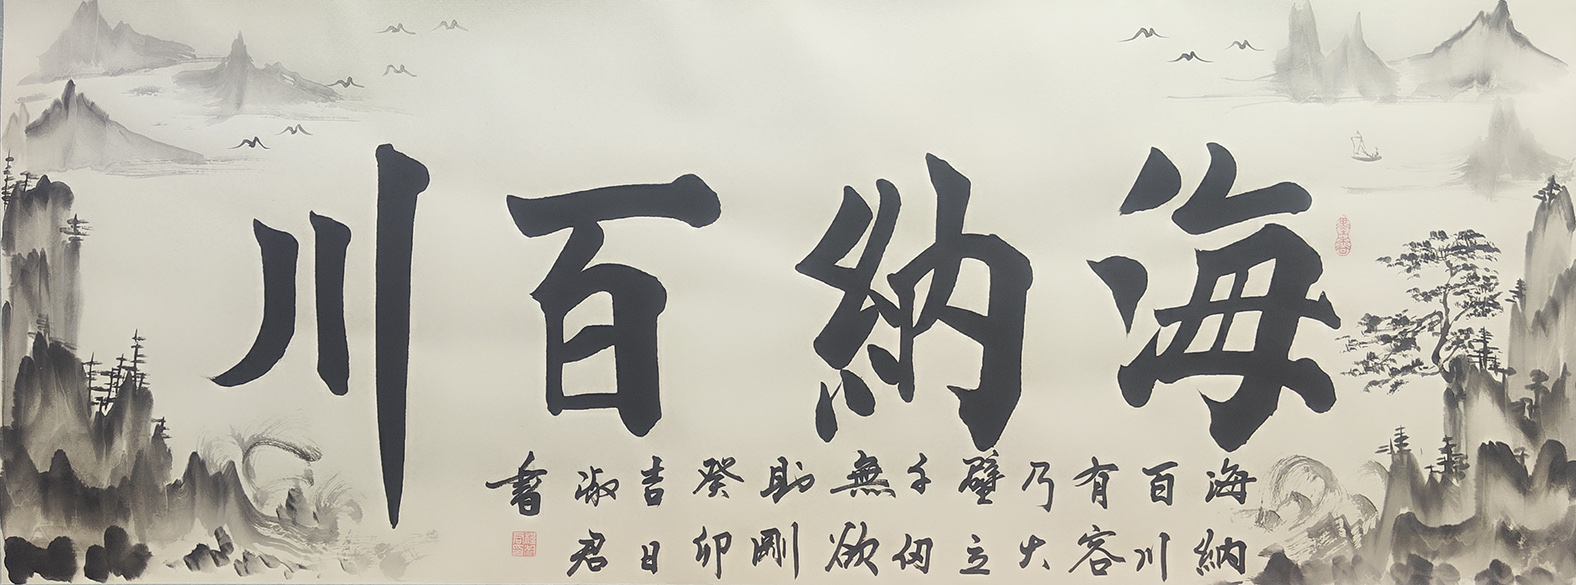 海納百川
海納
百川
有容
乃大
壁立
千仞
無欲
則剛
癸卯
吉日
淑君
書